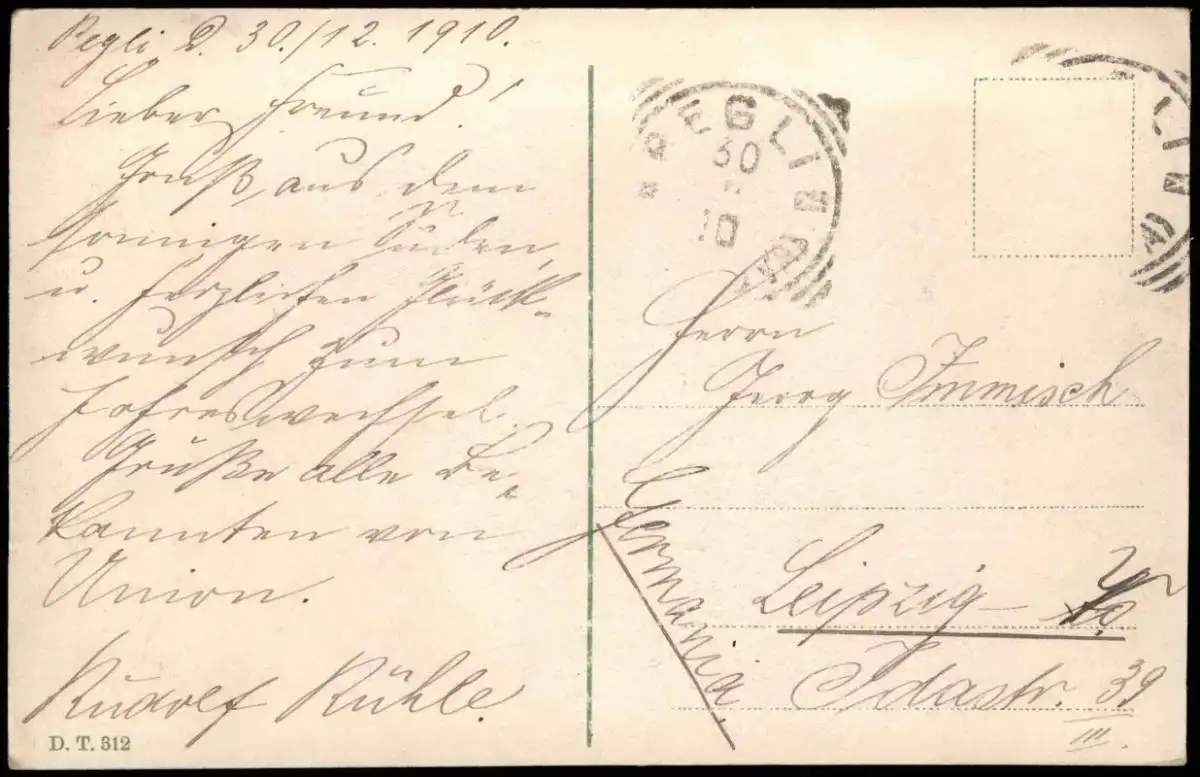 Pegli D. 30./12. 1910.
Lieber Freund!
Gruß aus dem
sonnigen Süden,
u. herzlichen Glück-
wunsch zum
Jahreswechsel.
Grüße alle Be-
kannten von
Union.
Rudolf Rühle.
D. T. 312
PEGLI
30
10
LI
Herrn
Georg Immisch
Germania.
Leipzig-
Idastr. 39
III.